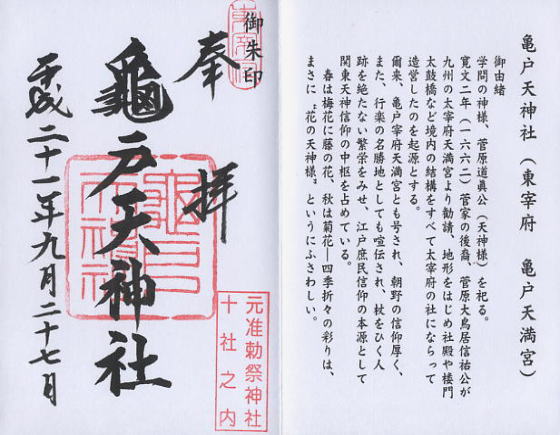 亀戸天神社（東宰府　亀戸天満宮）
御由緒
学問の神様、菅原道眞公（天神様）を祀る。
寛文二年（一六六二）菅家の後裔、菅原大鳥居信祐公が
九州の太宰府天満宮より勧請、地形をはじめ社殿や楼門
太鼓橋など境内の結構をすべて太宰府の社にならって
造営したのを起源とする。
爾来、亀戸宰府天満宮とも号され、朝野の信仰厚く、
また、行楽の名勝地としても喧伝され、杖をひく人
跡を絶たない繁栄をみせ、江戸庶民信仰の本源として
関東天神信仰の中枢を占めている。
春は梅花に藤の花、秋は菊花―四季折々の彩りは、
まさに〝花の天神様〟というにふさわしい。
御朱印
奉拝
元准勅祭神社
十社之内
龜戸天神社
平成二十一年九月二十七日